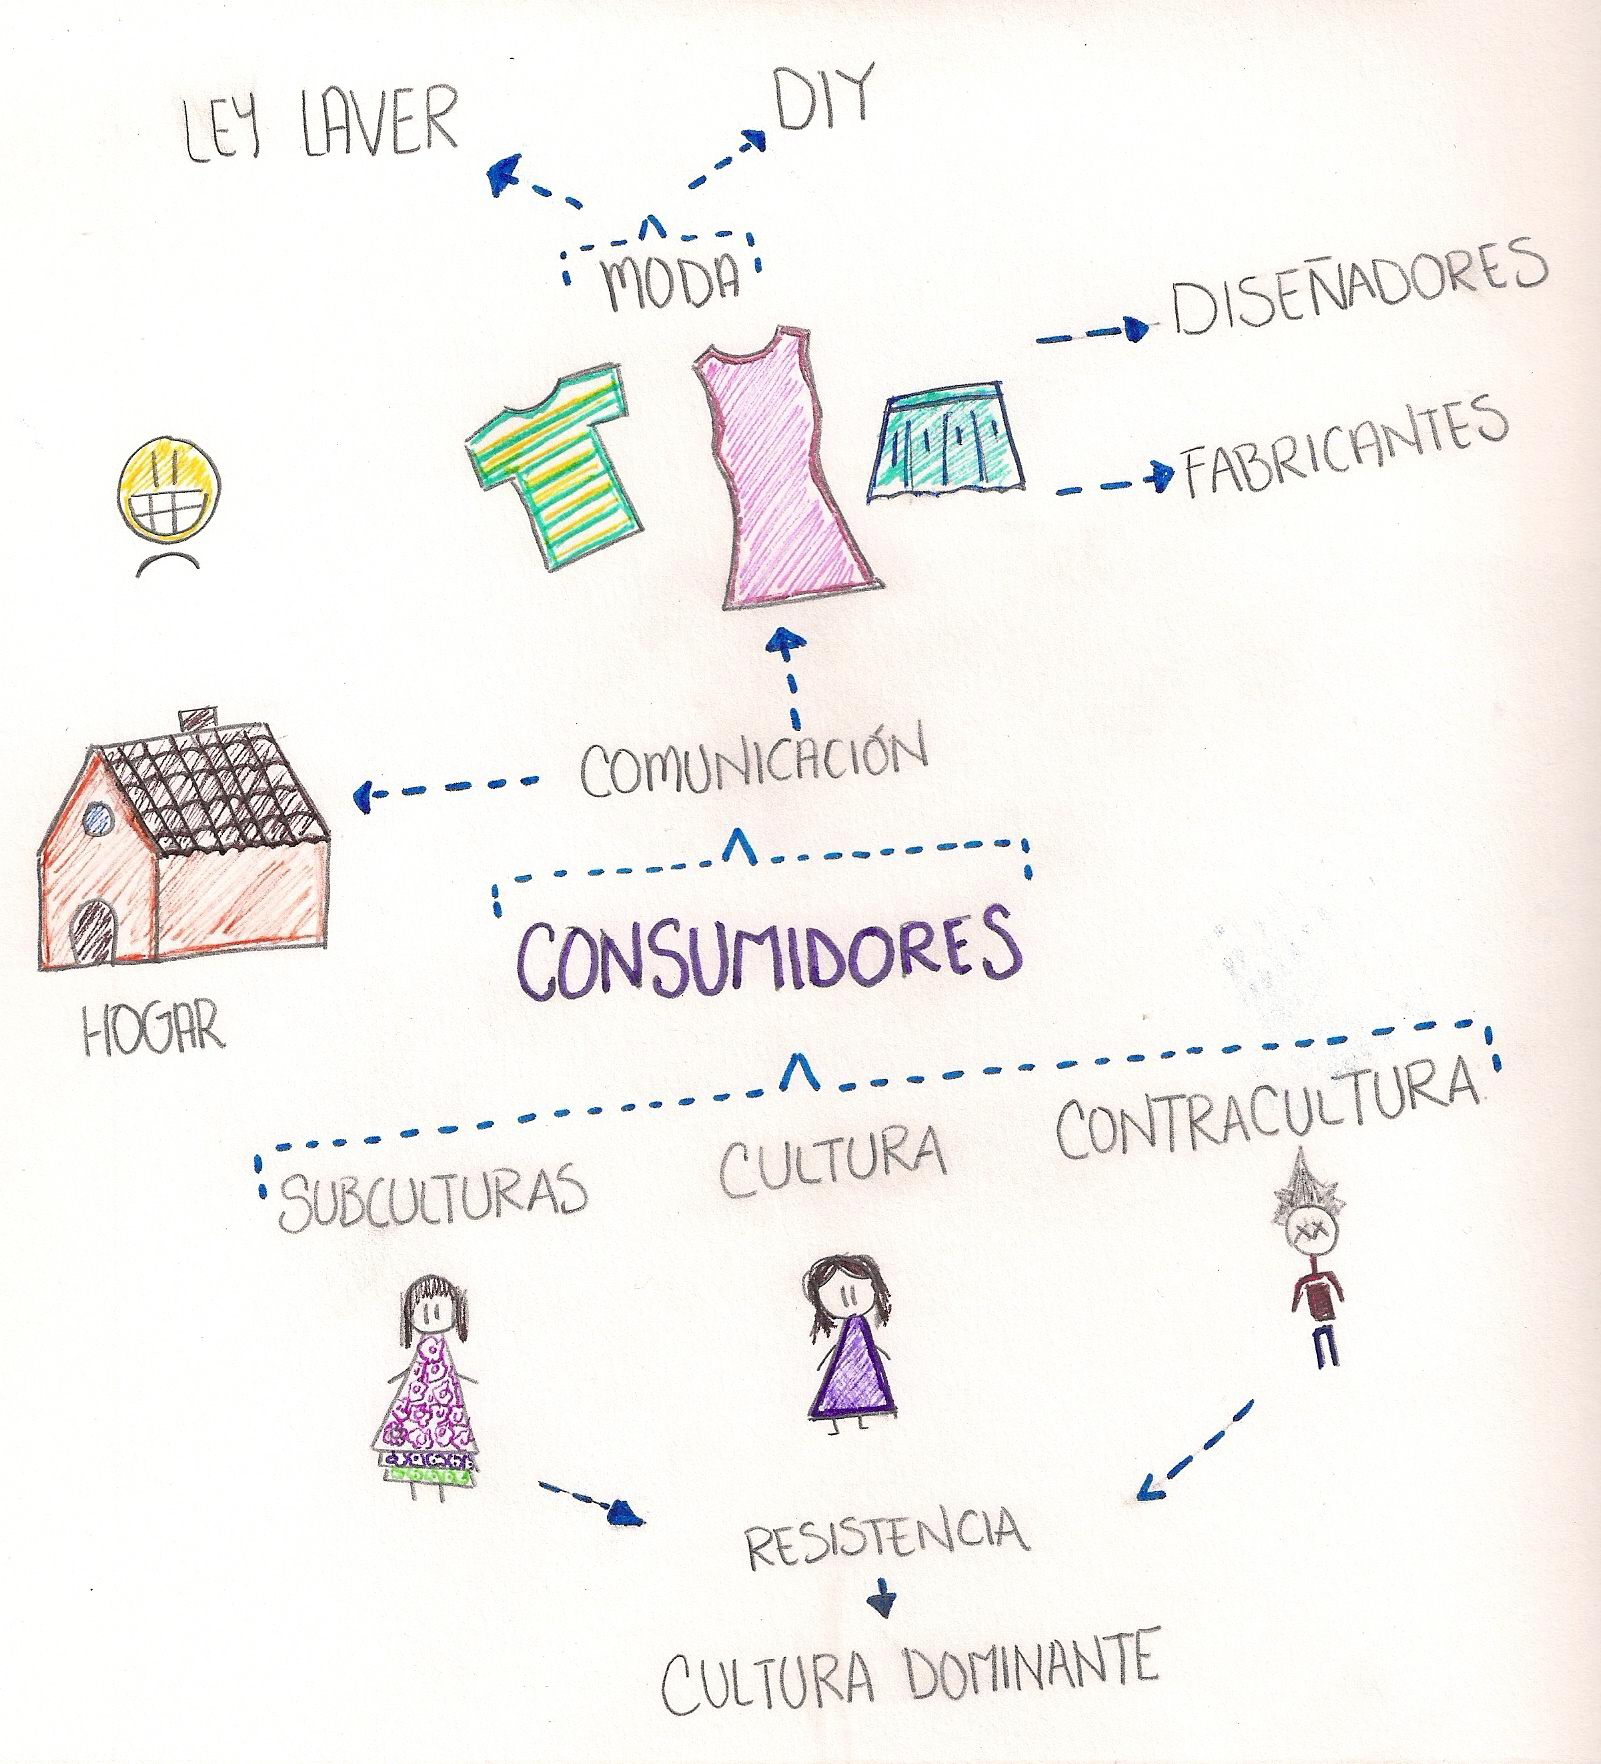 LEY LAVER
DIY
MODA
DISEÑADORES
FABRICANTES
COMUNICACIÓN
CONSUMIDORES
HOGAR
SUBCULTURAS
CULTURA
CONTRACULTURA
RESISTENCIA
CULTURA DOMINANTE